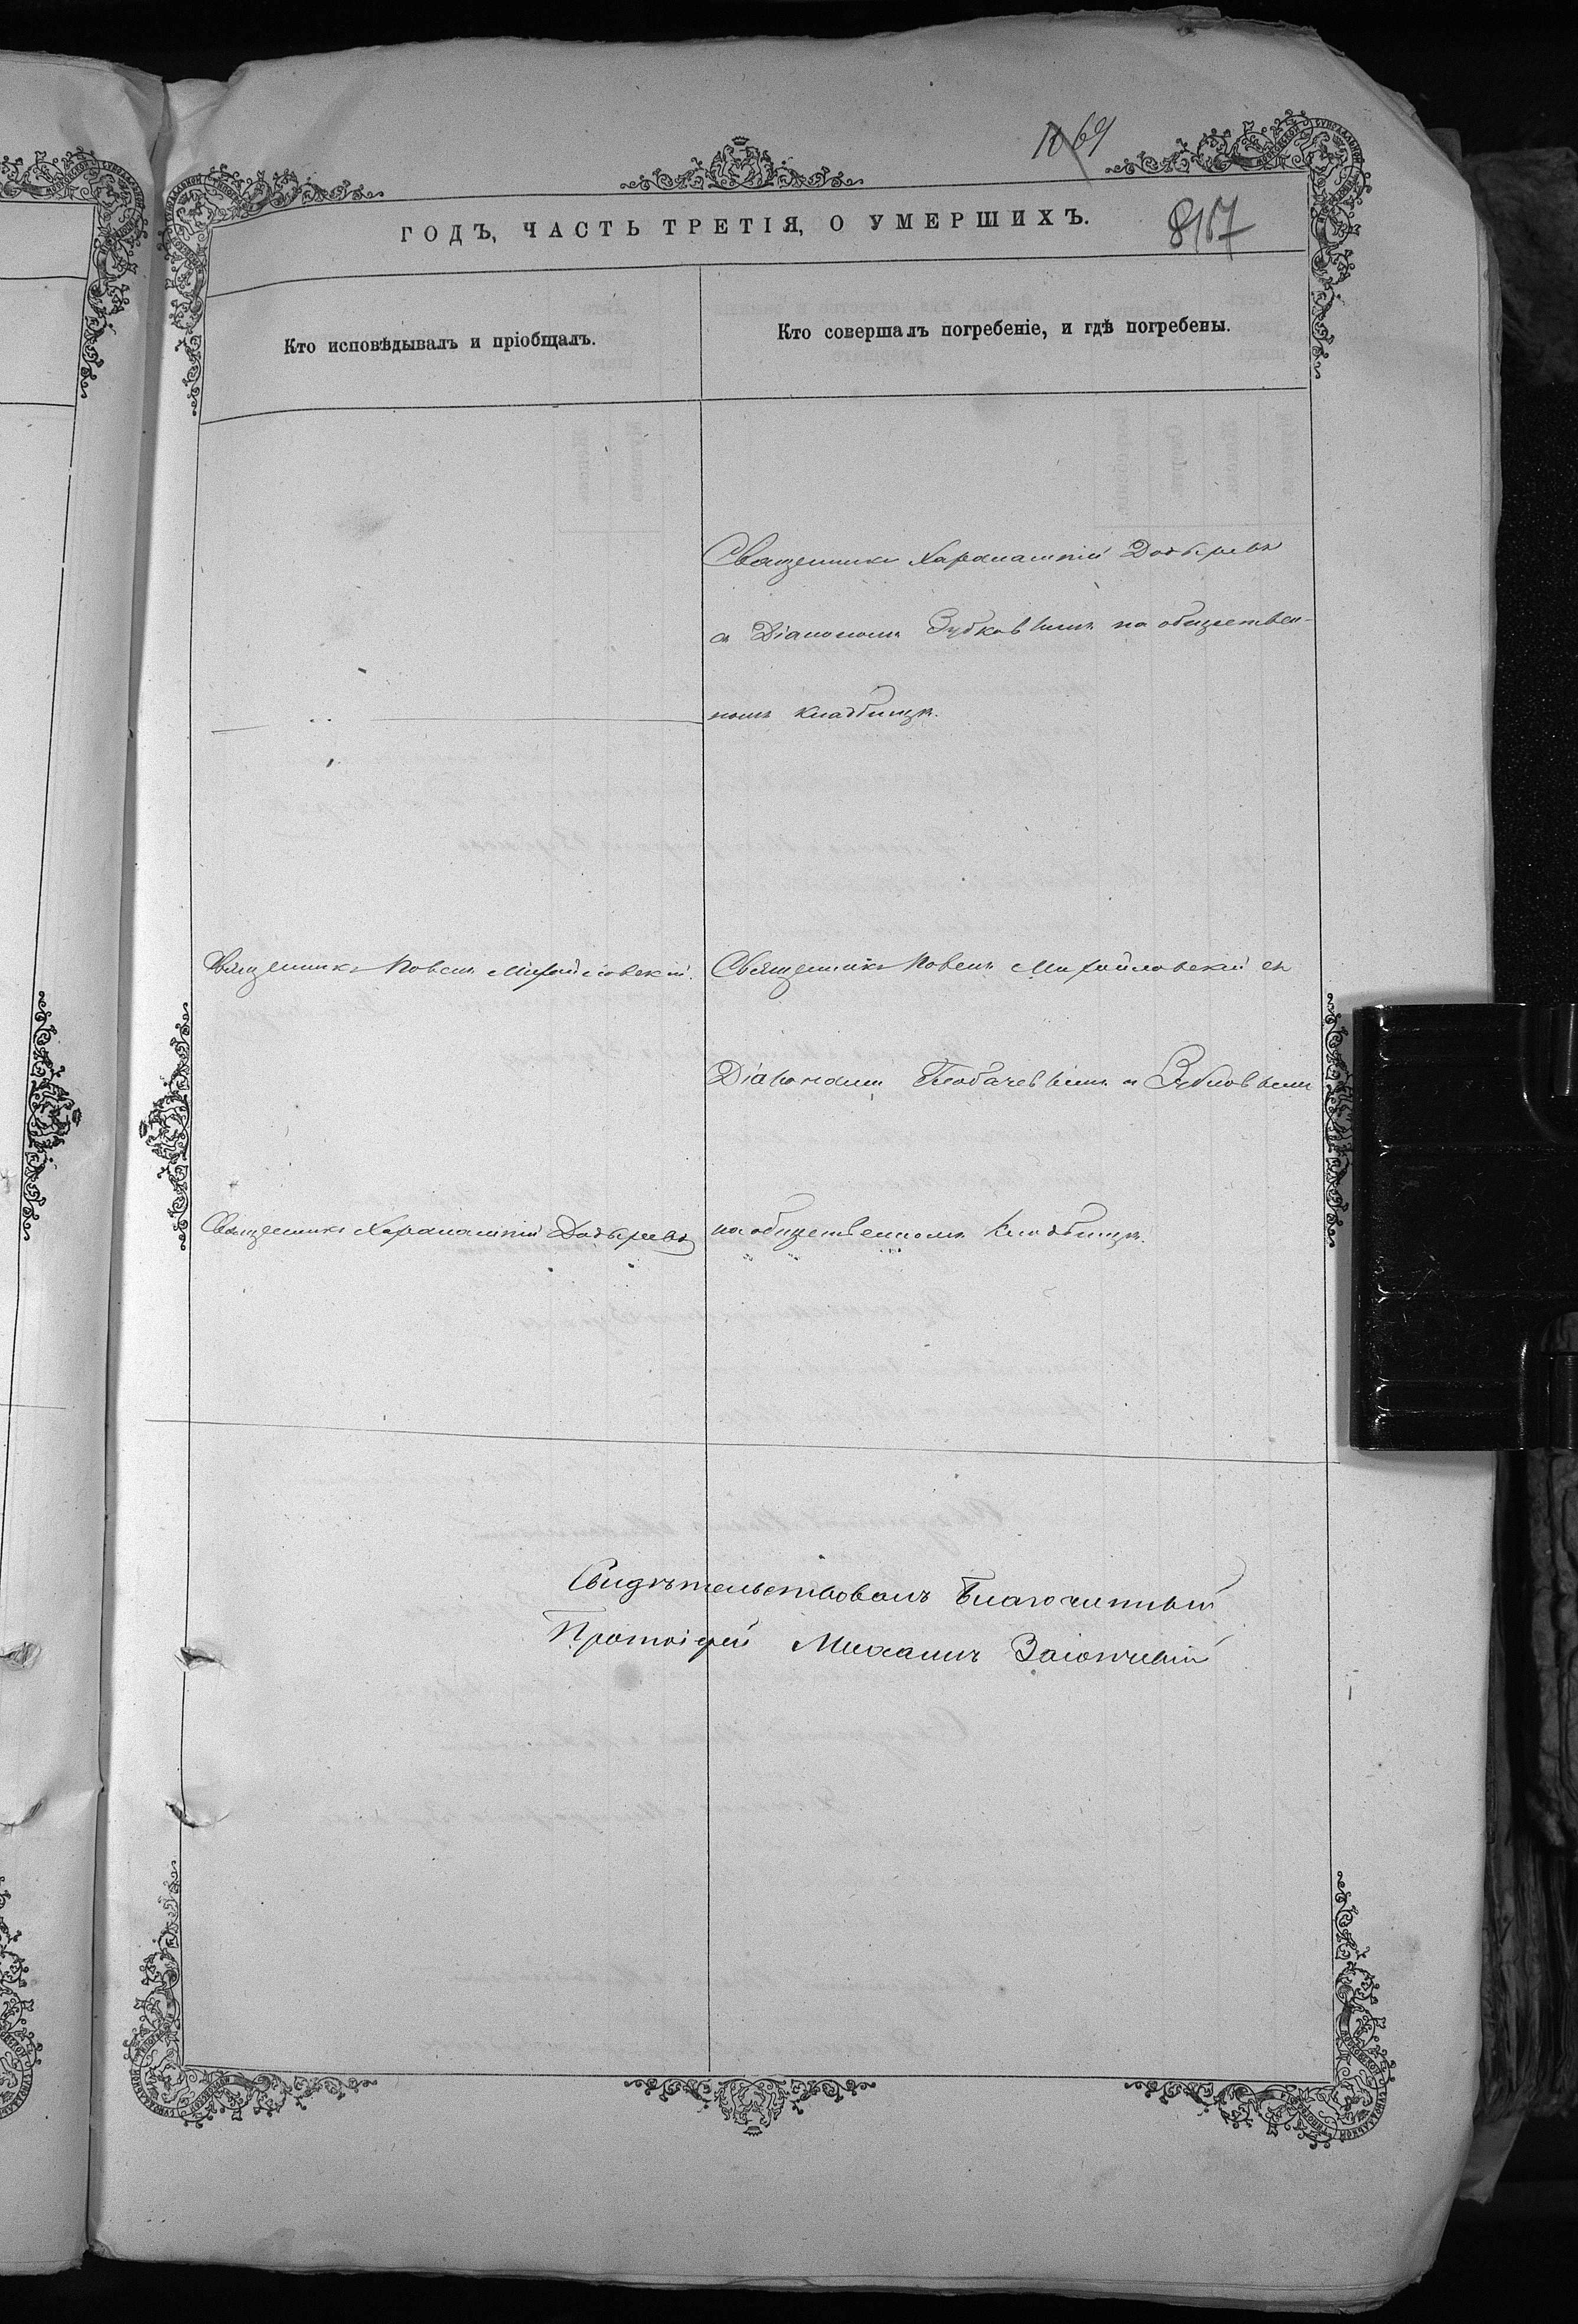 69
ГОДЪ, ЧАСТЬ ТРЕТІЯ, О УМЕРШИХЪ.
Кто исповѣдывалъ и пріобщалъ.
Кто совершалъ погребеніе, и гдѣ погребены.
Священникъ Харалампій
съ Діакономъ Зубковымъ на обществен-
номъ кладбищѣ.
Священникъ Павелъ Михайловскій.
Священникъ Павелъ Михайловскій съ
Діаконами и Зубковымъ
Священникъ Харалампій
на общественномъ кладбищѣ.
Свидѣтельствовалъ Благочинный
Протоіерей Михаилъ